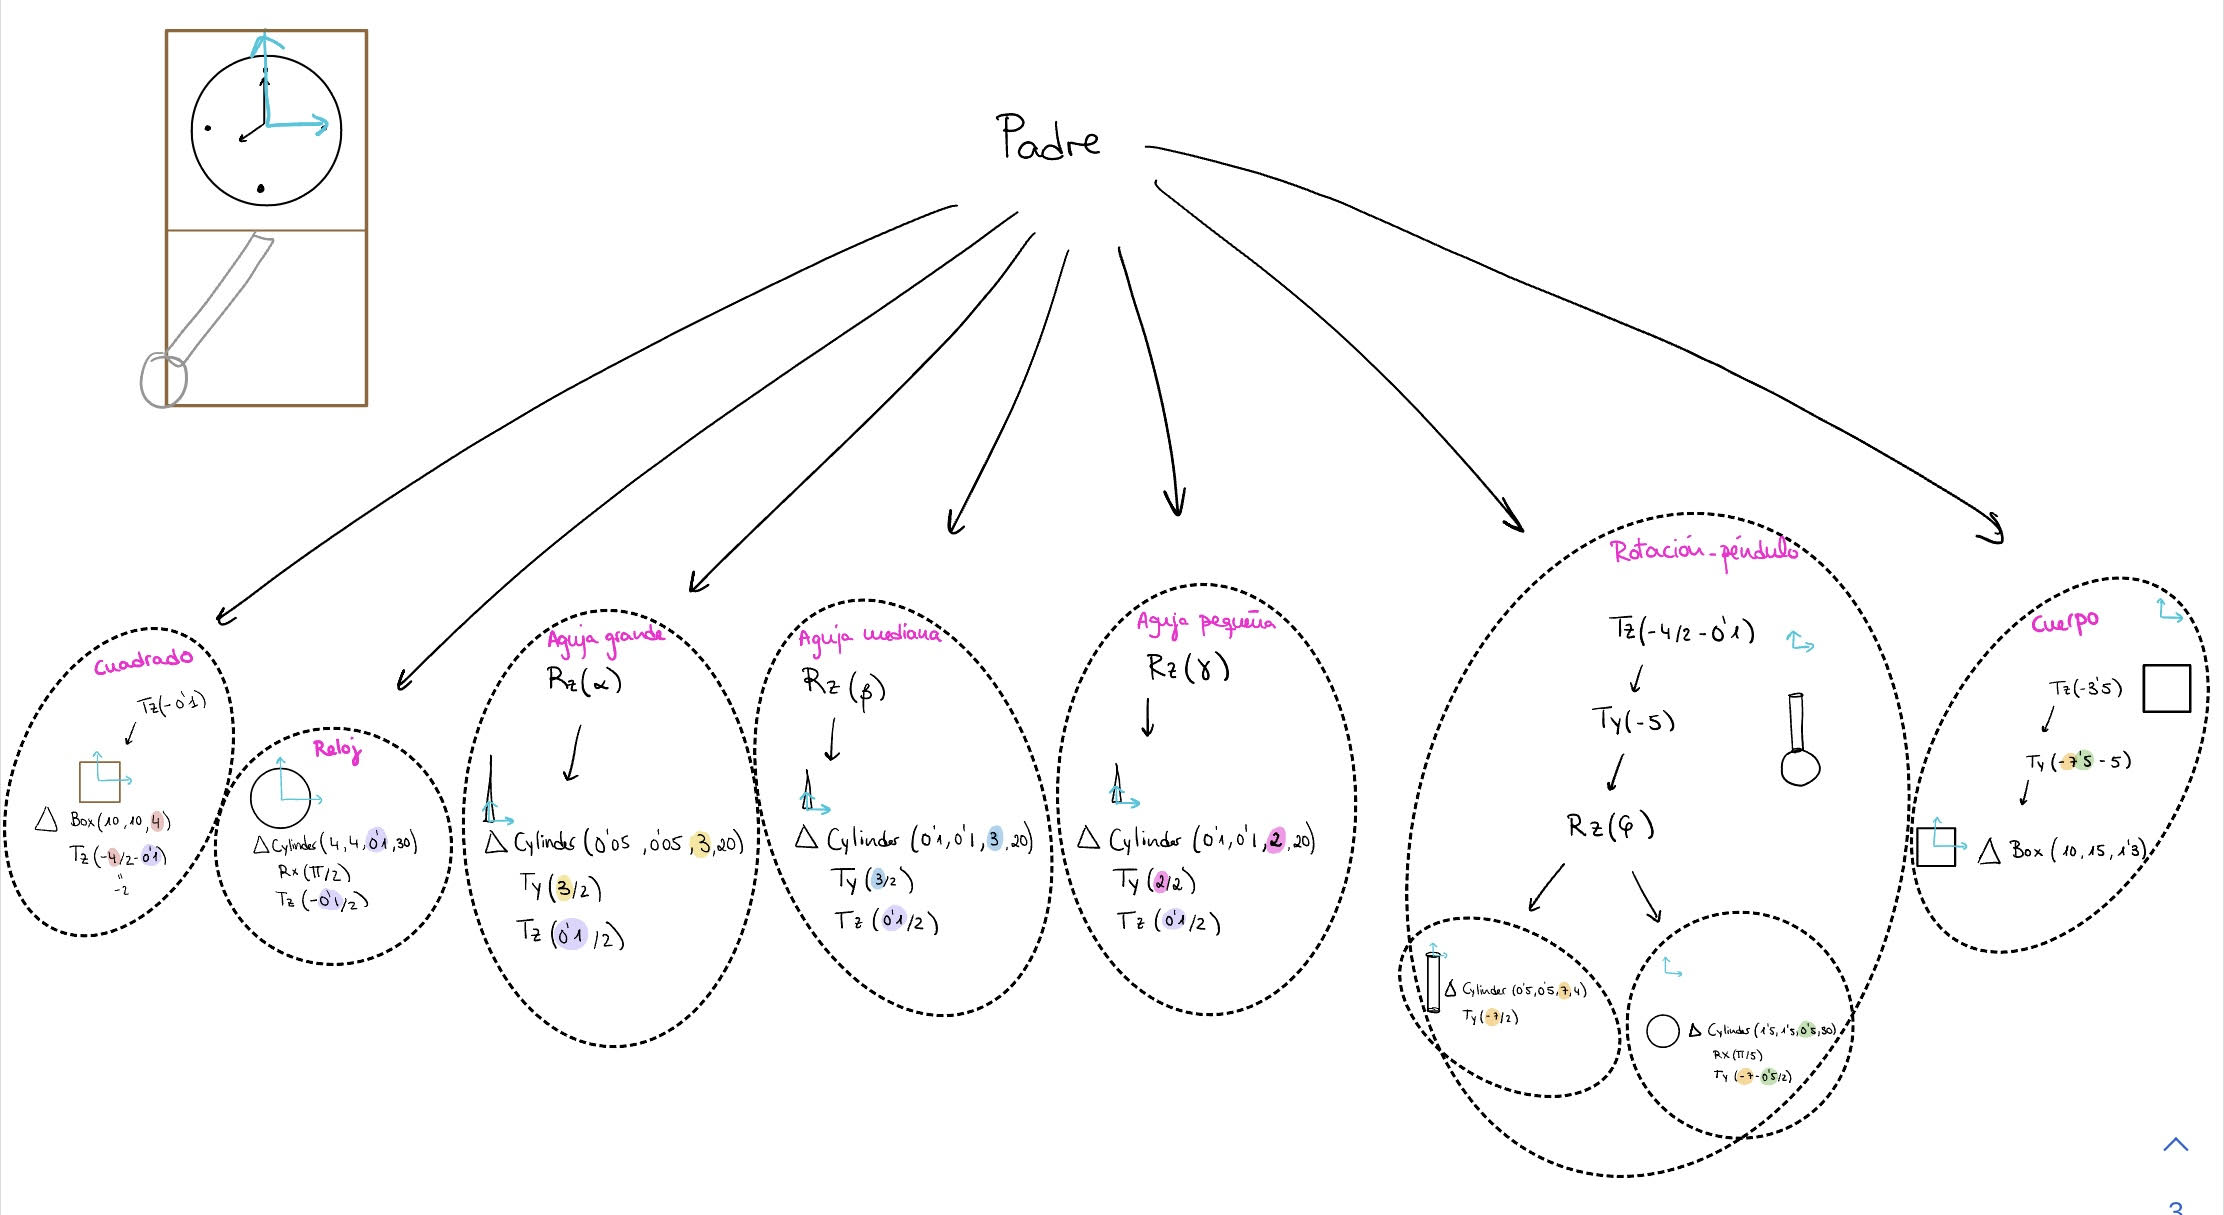 Padre
Cuadrado
Tz(-0'1)
△ Box(10,10,4)
Tz(-4/2-0'1)
"
-2
Reloj
△ Cylinder(4,4,0'1,30)
Rx(π/2)
Tz(-0'1/2)
Aguja grande
Rz(α)
△ Cylinder(0'05,0'05,3,20)
Ty(3/2)
Tz(0'1/2)
Aguja mediana
Rz(β)
△ Cylinder(0'1,0'1,3,20)
Ty(3/2)
Tz(0'1/2)
Aguja pequeña
Rz(γ)
△ Cylinder(0'1,0'1,2,20)
Ty(2/2)
Tz(0'1/2)
Rotación-péndulo
Tz(-4/2-0'1)
Ty(-5)
Rz(φ)
△ Cylinder(0'5,0'5,7,4)
Ty(-7/2)
△ Cylinder(1'5,1'5,0'5,30)
Rx(π/5)
Ty(-7-0'5/2)
Cuerpo
Tz(-3'5)
Ty(-7'5-5)
△ Box(10,15,1'3)
3